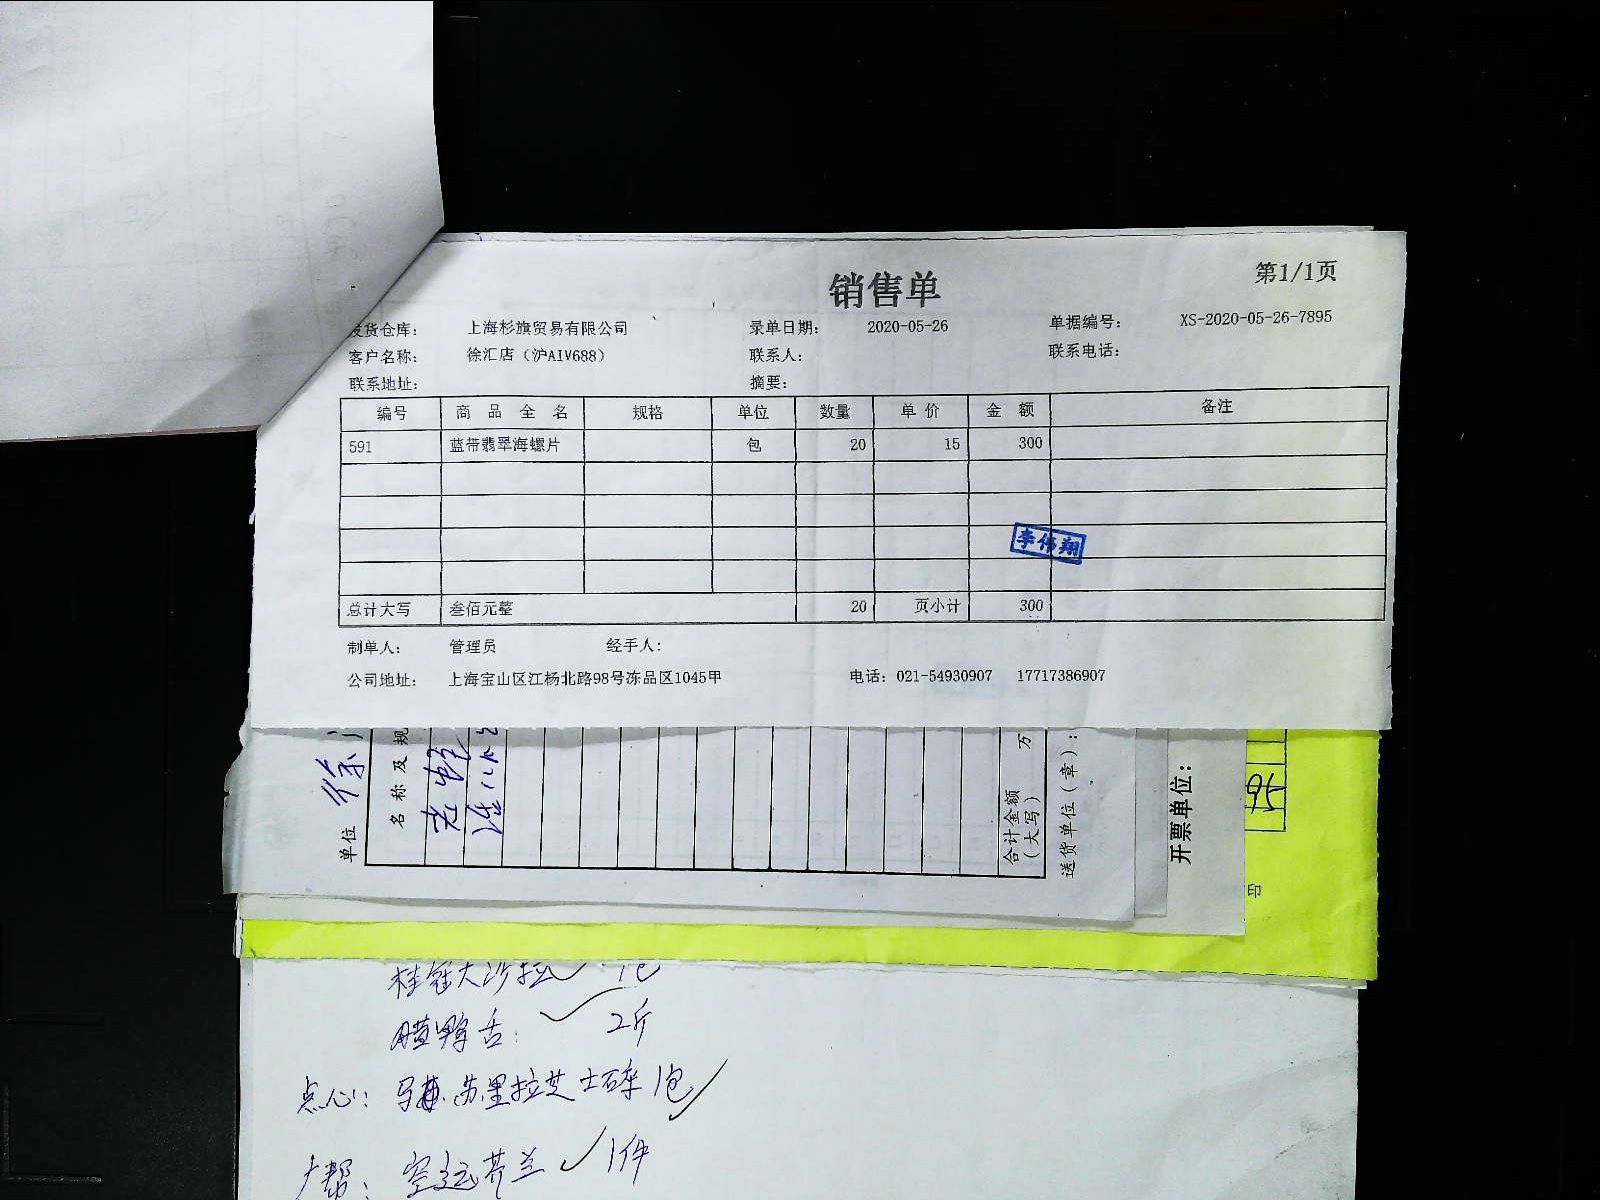 销售单
第1/1页
发货仓库： 上海杉旗贸易有限公司 录单日期： 2020-05-26 单据编号： XS-2020-05-26-7895
客户名称： 徐汇店（沪AIV688） 联系人： 联系电话：
联系地址： 摘要：
编号 商品全名 规格 单位 数量 单价 金额 备注
591 蓝带翡翠海螺片 包 20 15 300
李伟翔
总计大写 叁佰元整 20 页小计 300
制单人： 管理员 经手人：
公司地址： 上海宝山区江杨北路98号冻品区1045甲 电话：021-54930907 17717386907
单位 徐
名称及规
合计金额（大写） 万
送货单位（章）：
开票单位：
95
印
大沙拉 1包
腊鸭舌： 2斤
点心： 马苏里拉芝士碎 1包
空运芥兰 1件